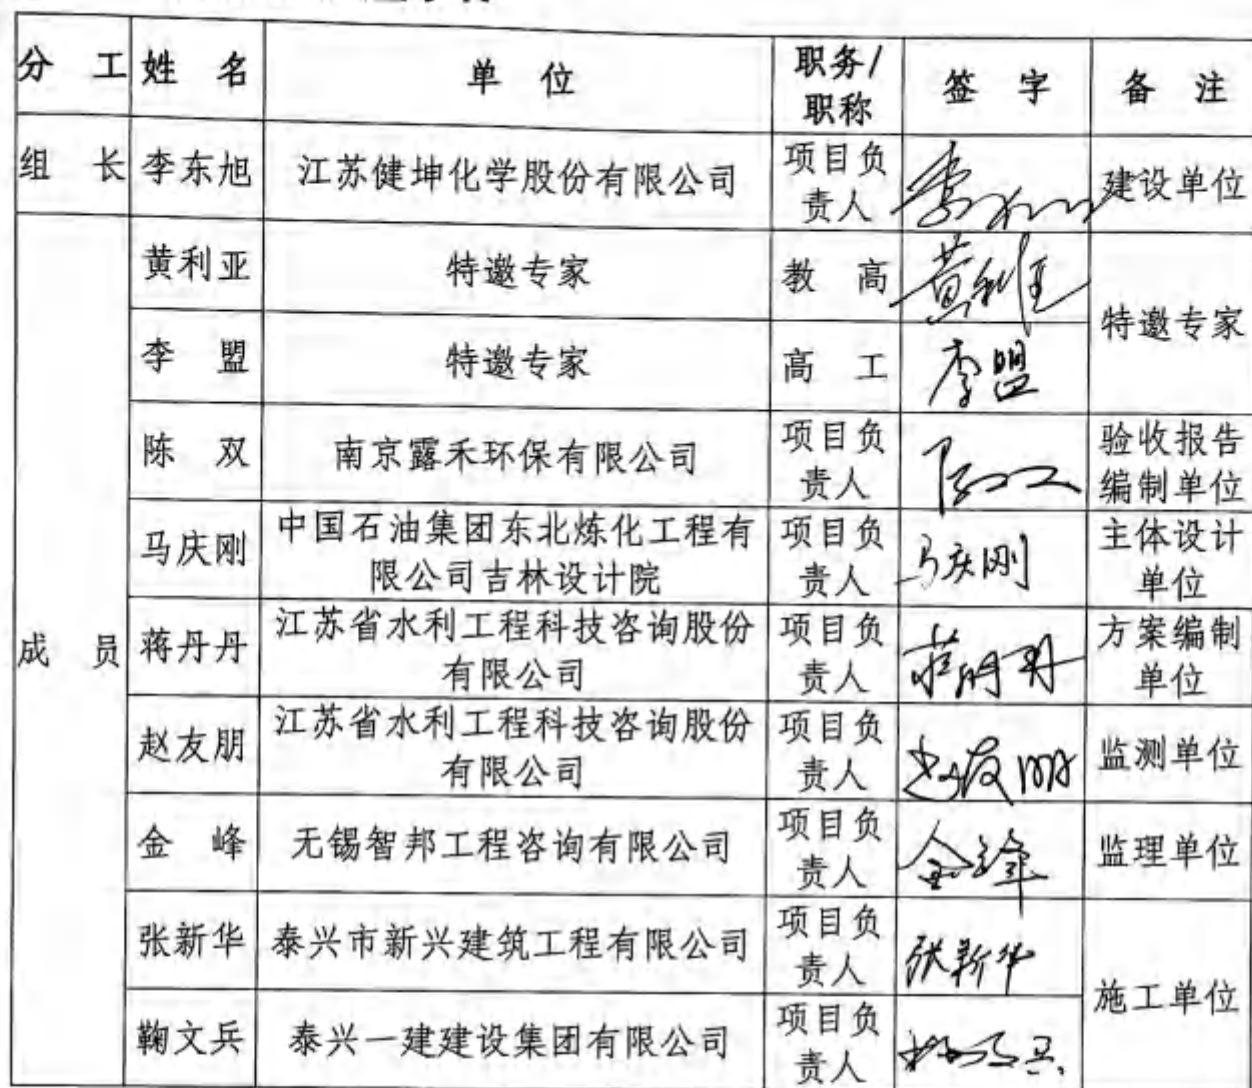 分 工 姓 名 单 位 职务/职称 签 字 备 注
组 长 李东旭 江苏健坤化学股份有限公司 项目负责人 建设单位
成 员
黄利亚 特邀专家 教 高 黄利亚 特邀专家
李 盟 特邀专家 高 工 李盟
陈 双 南京露禾环保有限公司 项目负责人 陈双 验收报告编制单位
马庆刚 中国石油集团东北炼化工程有限公司吉林设计院 项目负责人 马庆刚 主体设计单位
蒋丹丹 江苏省水利工程科技咨询股份有限公司 项目负责人 蒋丹丹 方案编制单位
赵友朋 江苏省水利工程科技咨询股份有限公司 项目负责人 赵友朋 监测单位
金 峰 无锡智邦工程咨询有限公司 项目负责人 金峰 监理单位
张新华 泰兴市新兴建筑工程有限公司 项目负责人 张新华 施工单位
鞠文兵 泰兴一建建设集团有限公司 项目负责人